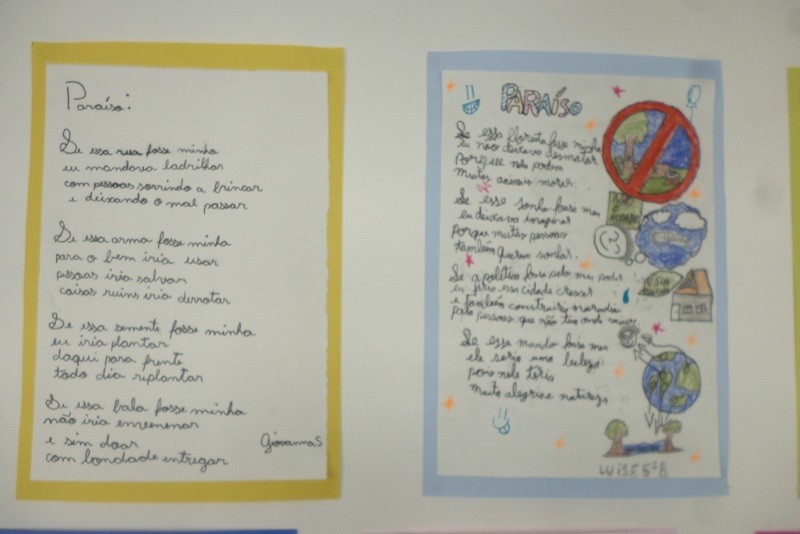 Paraíso:
Se essa rua fosse minha
eu mandava ladrilhar
com pessoas sorrindo a brincar
e deixando o mal passar
Se essa arma fosse minha
para o bem iria usar
pessoas iria salvar
coisas ruins iria derrotar
Se essa semente fosse minha
eu iria plantar
daqui para frente
todo dia replantar
Se essa bala fosse minha
não iria envenenar
e sim doar
com bondade entregar
GiovannaS
PARAÍSO
Se essa floresta fosse minha
eu não deixava desmatar
porque nela podem
muitos animais morar.
Se esse sonho fosse meu
eu deixava imaginar
porque muitas pessoas
também querem sonhar.
Se a política fosse pelo meu poder
eu faria essa cidade crescer
e também construiria moradia
para pessoas que não tem onde
Se esse mundo fosse meu
ele seria uma beleza
pois nele teria
muita alegria e natureza
LUIS.F. 5ºB